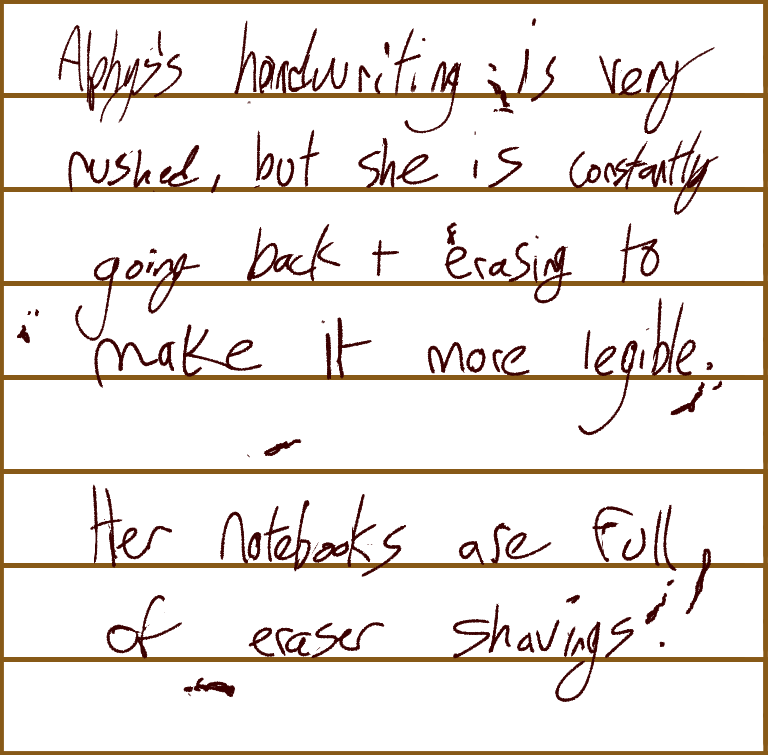 Alphys's handwriting is very
rushed, but she is constantly
going back + erasing to
make it more legible.
Her notebooks are full
of eraser shavings.